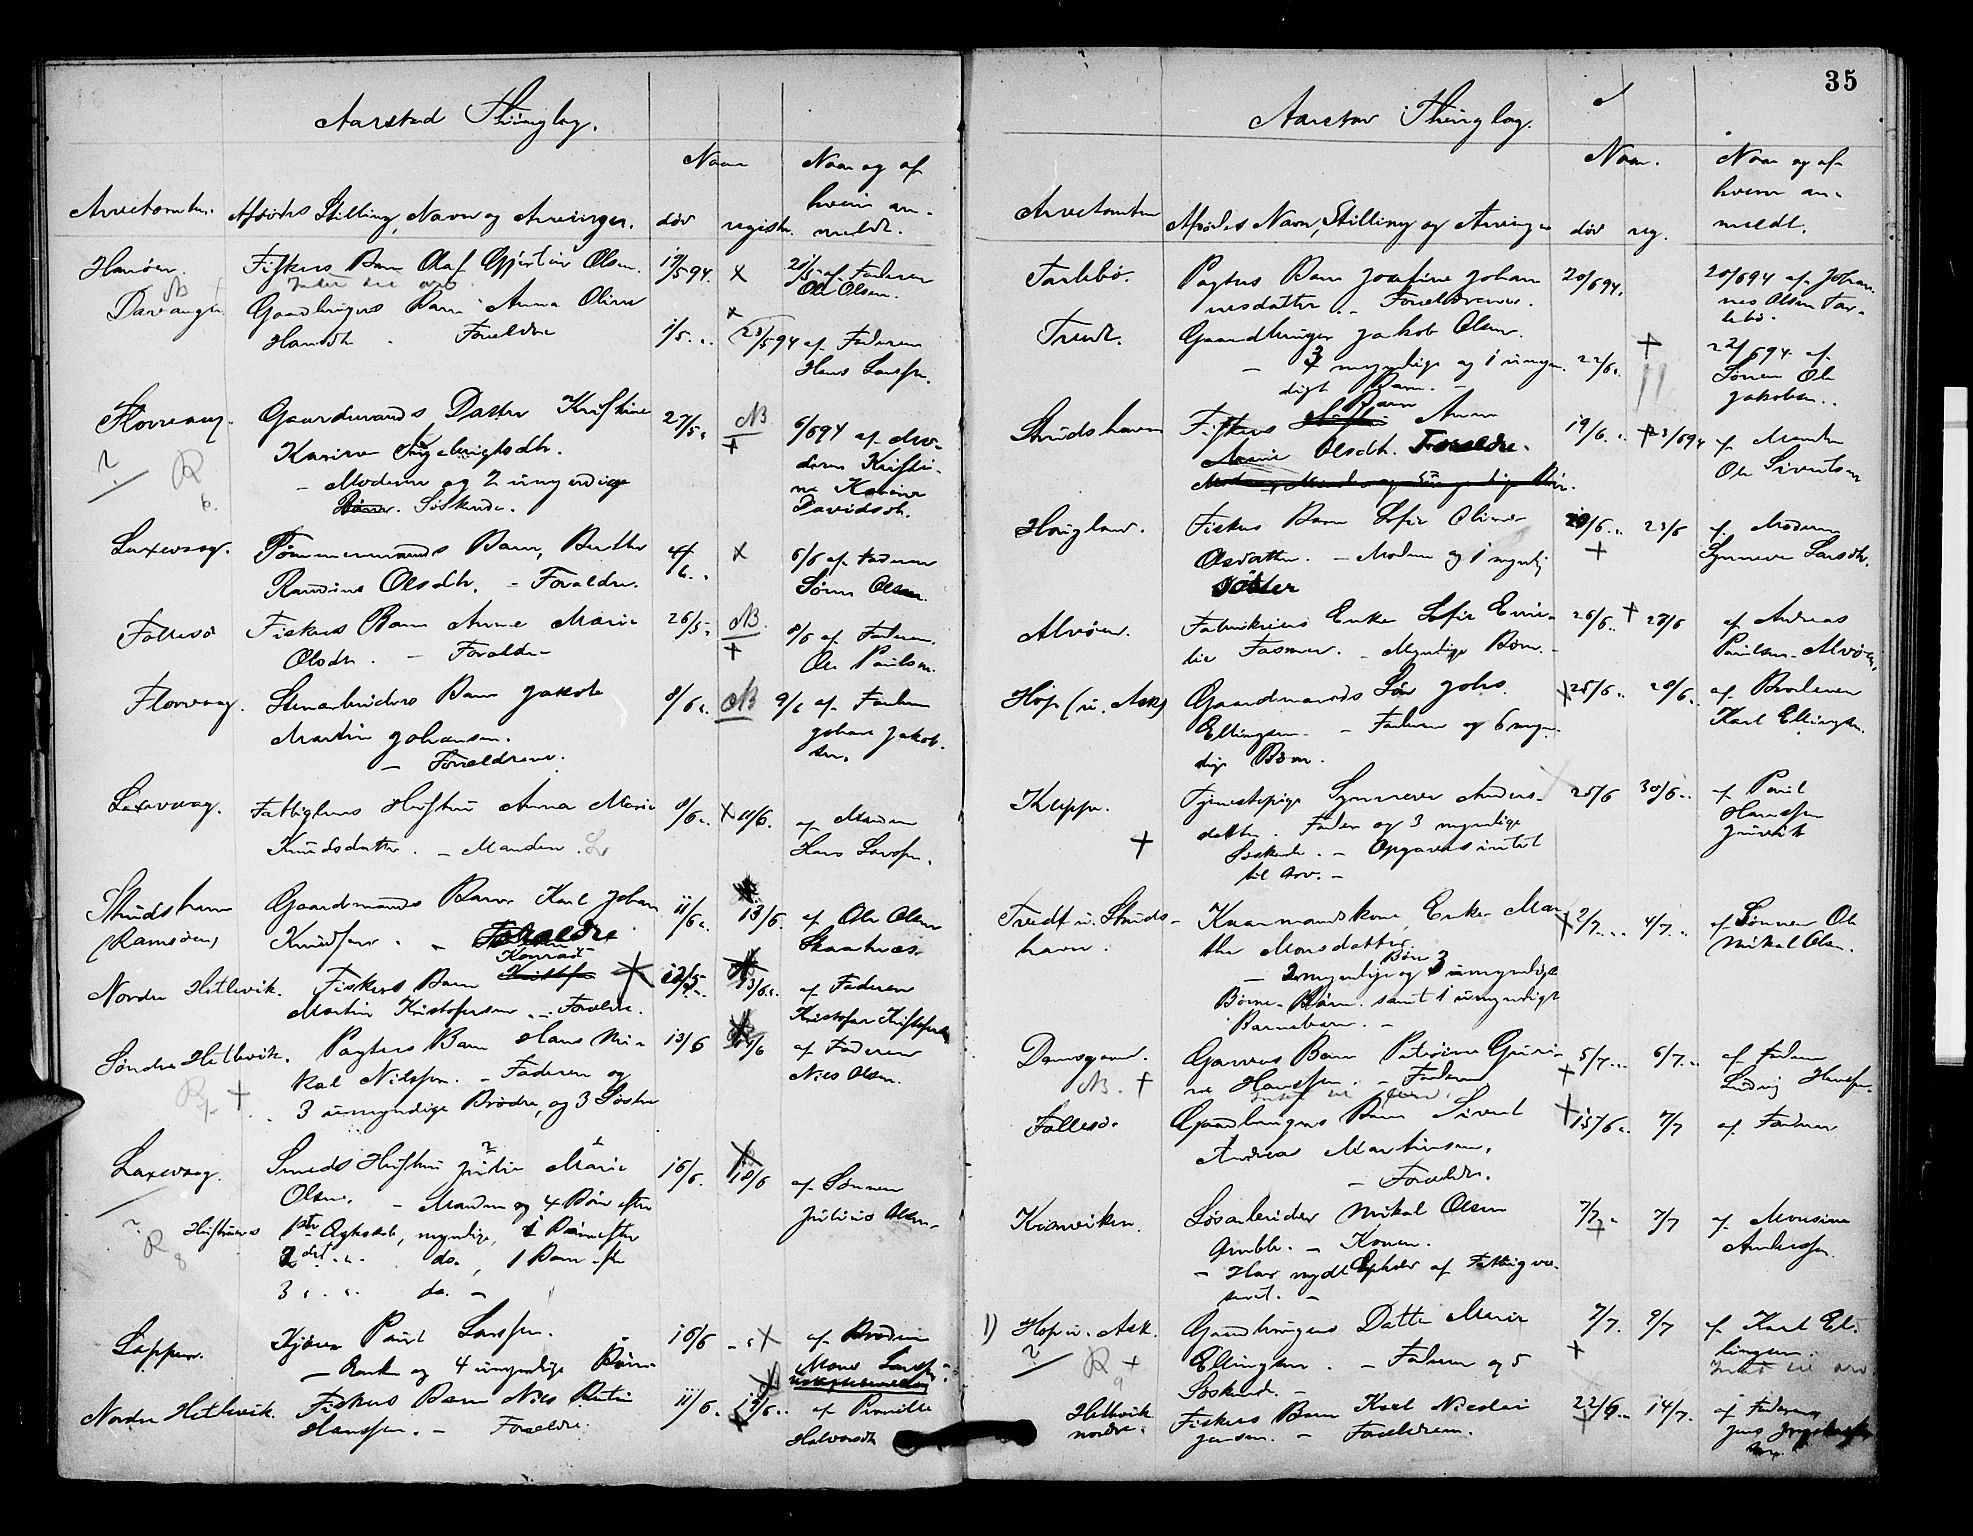 Aarstad Thinglag.
Naar
Naar og af
hvem an-
meldt.
Arvetomten. Afdødes Stilling, Navn og Arvinger. død registr.
Hanøen. Fiskers Barn Olaf Gjertin Olsen. 19/5 94. x 21/5 af Faderen
Intet til arv Ole Olsen.
NB
Davanger. Gaardbrugers Barn Anna Oline x
Hansdtr. Forældre 1/5 23/5 94 af Faderen
Hans Larssen.
Florvaag. Gaardmands Datter Kristine 27/5 NB 6/6 94 af Mo-
? R 6. Karine Ingebrigtsdtr. + deren Kristi-
- Moderen og 2 umyndige ne Karine
Børn. Søskende. Davidsdtr.
Laxevaag. Tømmermands Barn, Berthe 4/6 x 6/6 af Faderen
Randine Olsdtr. - Forældre. Søren Olsen.
Follesø Fiskers Barn Anne Marie 26/5 NB 8/6 af Faderen
Olsdtr. - Forældre - + Ole Paulsen.
Florvaag. Stenarbeiders Barn Jakob 8/6 NB 9/6 af Faderen
Martin Johansen. Johan Jakob-
- Forældrene. sen.
Laxevaag. Fattiglems Hustru Anna Marie 8/6 x 11/6. af Manden
Knudsdatter. - Manden. Hans Larssen.
Strudshavn Gaardmands Barn Karl Johan 11/6 13/6. af Ole Olsen
(Ramsøen) Knudsen. - Forældre
Konrad
Nordre Hetlevik. Fiskers Barn Kristofer 12/5 13/6 af Faderen
Martin Kristofersen. - Forældre. Kristofer Kristofersen
Søndre Hetlevik. Pagters Barn Hans Mi- 13/6 af Faderen
R 7. + kal Nilssen. - Faderen og Nils Olsen.
3 umyndige Brødre, og 3 Søstre
Laxevaag. Smeds Hustru Julie Marie 16/6. 18/6 af Sønnen
? R 8 Olsen. - Manden og 4 Børn efter Julius Olsen.
Hustruens 1ste Ægteskab, myndige, 1 Barn efter
2det do., 1 Barn efter
3 do. -
Loppen. Kjører Paul Larssen. 16/6 x af Broderen
- Enke og 4 umyndige Børn Mons Larssen
Nordre Hetlevik. Fiskers Barn Nils Martin 11/6. af Pernille
Hanssen. - Forældre. Halvorsdtr
35
Aarstad Thinglag.
Naar.
Naar og af
hvem an-
meldt.
Arvetomten Afdødes Navn, Stilling og Arvinger død reg.
Tarlebø. Pagters Barn Josefine Johan 20/6 94. 20/6 94 af Johan-
nesdatter. - Forældrene. nes Olsen Tar-
lebø.
Tredt. Gaardbruger Jakob Olsen. + 22/6 94 af
- 3 myndige og 1 umyn- 22/6 Sønnen Ole
digt Barn. - Jakobsen.
Strudshavn Fiskers Barn Anna 19/6 + 23/6 94 af Manden
Marie Olsdtr. Forældre. Ole Sivertsen
Haugland. Fiskers Barn Sofie Oline 20/6 23/6 af Moderen
Olsdatter. - Moderen og 1 myndig + Synneve Larsdtr.
Søster
Alvøen. Fabrikeiers Enke Sofie Emi- 26/6 + 27/6 af Andreas
lie Fasmer. - Myndige Børn. - Paulsen - Alvøen.
Hop (u. Ask) Gaardmands Søn Johs. x 25/6 28/6 af Broderen
Ellingsen. - Faderen og 6 myn- Karl Ellingsen.
dige Børn.
Kleppe. Tjenestepige Synneve Anders- 25/6 30/6 af Paul
+ datter. Fader og 3 myndige Hanssen
Søskende. - Opgaves intet Juvik
til Arv. -
Tredt u. Struds- Kaarmandskone, Enke Mar 2/7 4/7 af Sønnen Ole
havn. the Monsdatter. Mikal Olsen.
- 2 myndige og 3 umyndige
Børne-Børn. samt 1 umyndigt
Barnebarn. -
Damsgaard. Garvers Barn Petrine Guri- 5/7 6/7 af Faderen
NB. + ne Hanssen. - Faderen + Ludvig Hanssen.
Follesø. Gaardbrugers Barn Sivert + 15/6 7/7 af Faderen
Andreas Martinsen.
- Forældre.
Kjørviken. Løsarbeider Mikal Olsen 7/7 7/7 af Monsine
Gravdal. - Konen. + Anderssen
- Har nydt Ophold af Fattigvæ-
senet. -
1) Hop u. Ask. Gaardbrugers Datter Marie 7/7. 9/7 af Karl El-
? R 9 + Ellingsen. - Faderen og 5 + lingsen.
Søskende. - Intet til arv
Hetlevik Fiskers Barn Karl Nicolai 22/6 14/7. af Faderen
nordre. Jensen. - Forældrene. + Jens